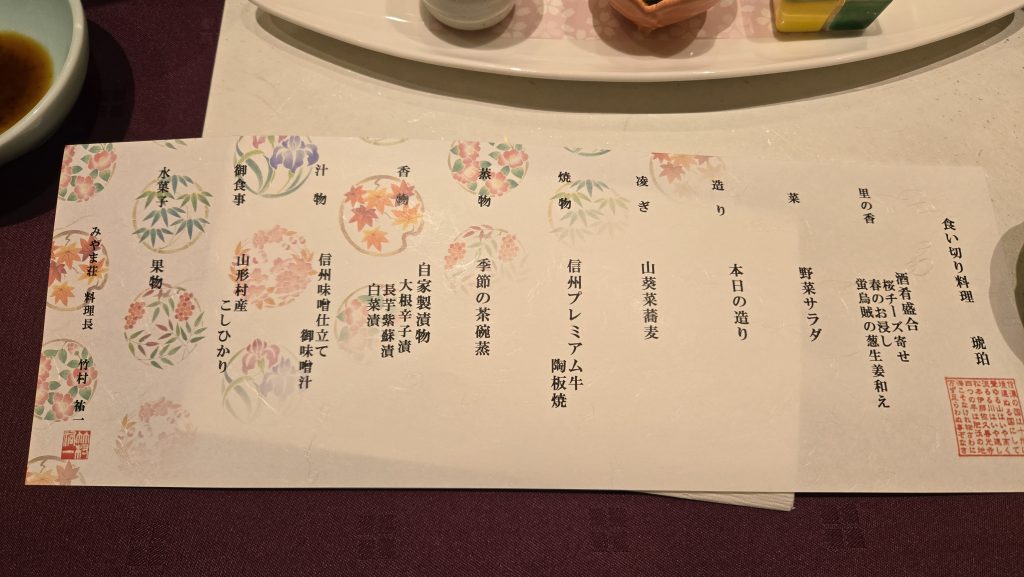 食い切り料理　琥珀
里の香
酒肴盛合
桜チーズ寄せ
春のお浸し
蛍烏賊の葱生姜和え
菜
野菜サラダ
造り
本日の造り
凌ぎ
山葵菜蕎麦
焼物
信州プレミアム牛
陶板焼
蒸物
季節の茶碗蒸
香物
自家製漬物
大根辛子漬
長芋紫蘇漬
白菜漬
汁物
信州味噌仕立て
御味噌汁
御食事
山形村産
こしひかり
水菓子
果物
みやま荘　料理長　竹村　祐一